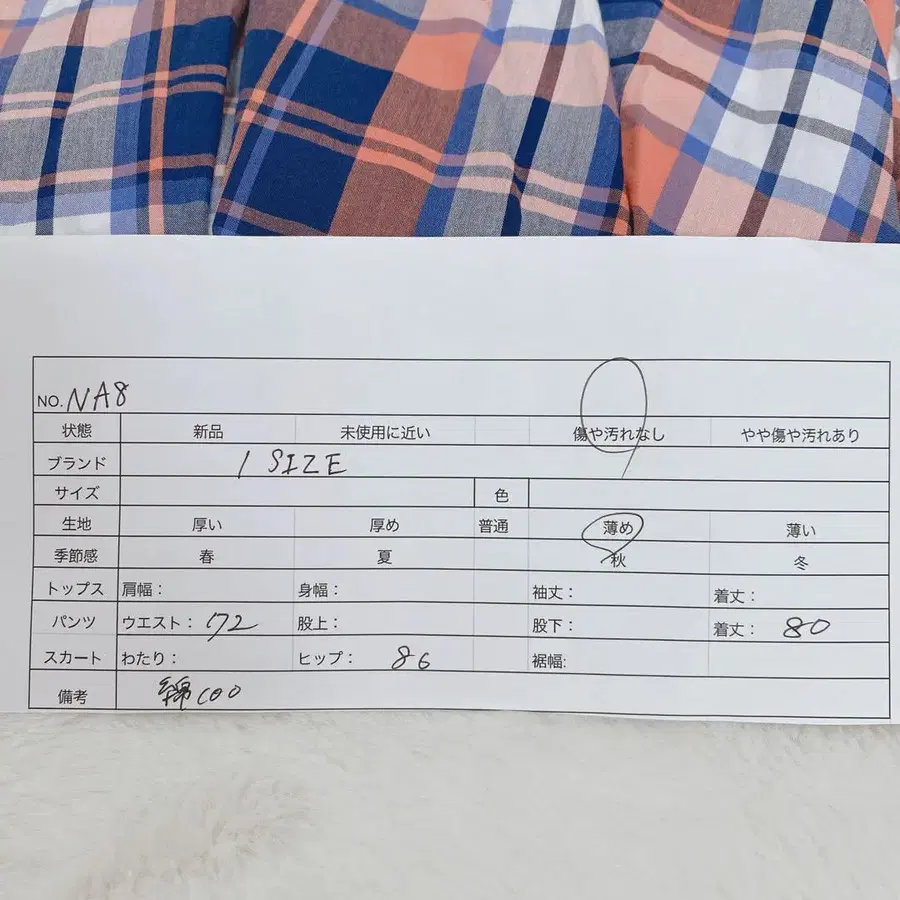 NO. NA8
状態 新品 未使用に近い 傷や汚れなし やや傷や汚れあり
ブランド 1 SIZE
サイズ 色
生地 厚い 厚め 普通 薄め 薄い
季節感 春 夏 秋 冬
トップス 肩幅: 身幅: 袖丈: 着丈:
パンツ ウエスト: 72 股上: 股下: 着丈: 80
スカート わたり: ヒップ: 86 裾幅:
備考 綿100